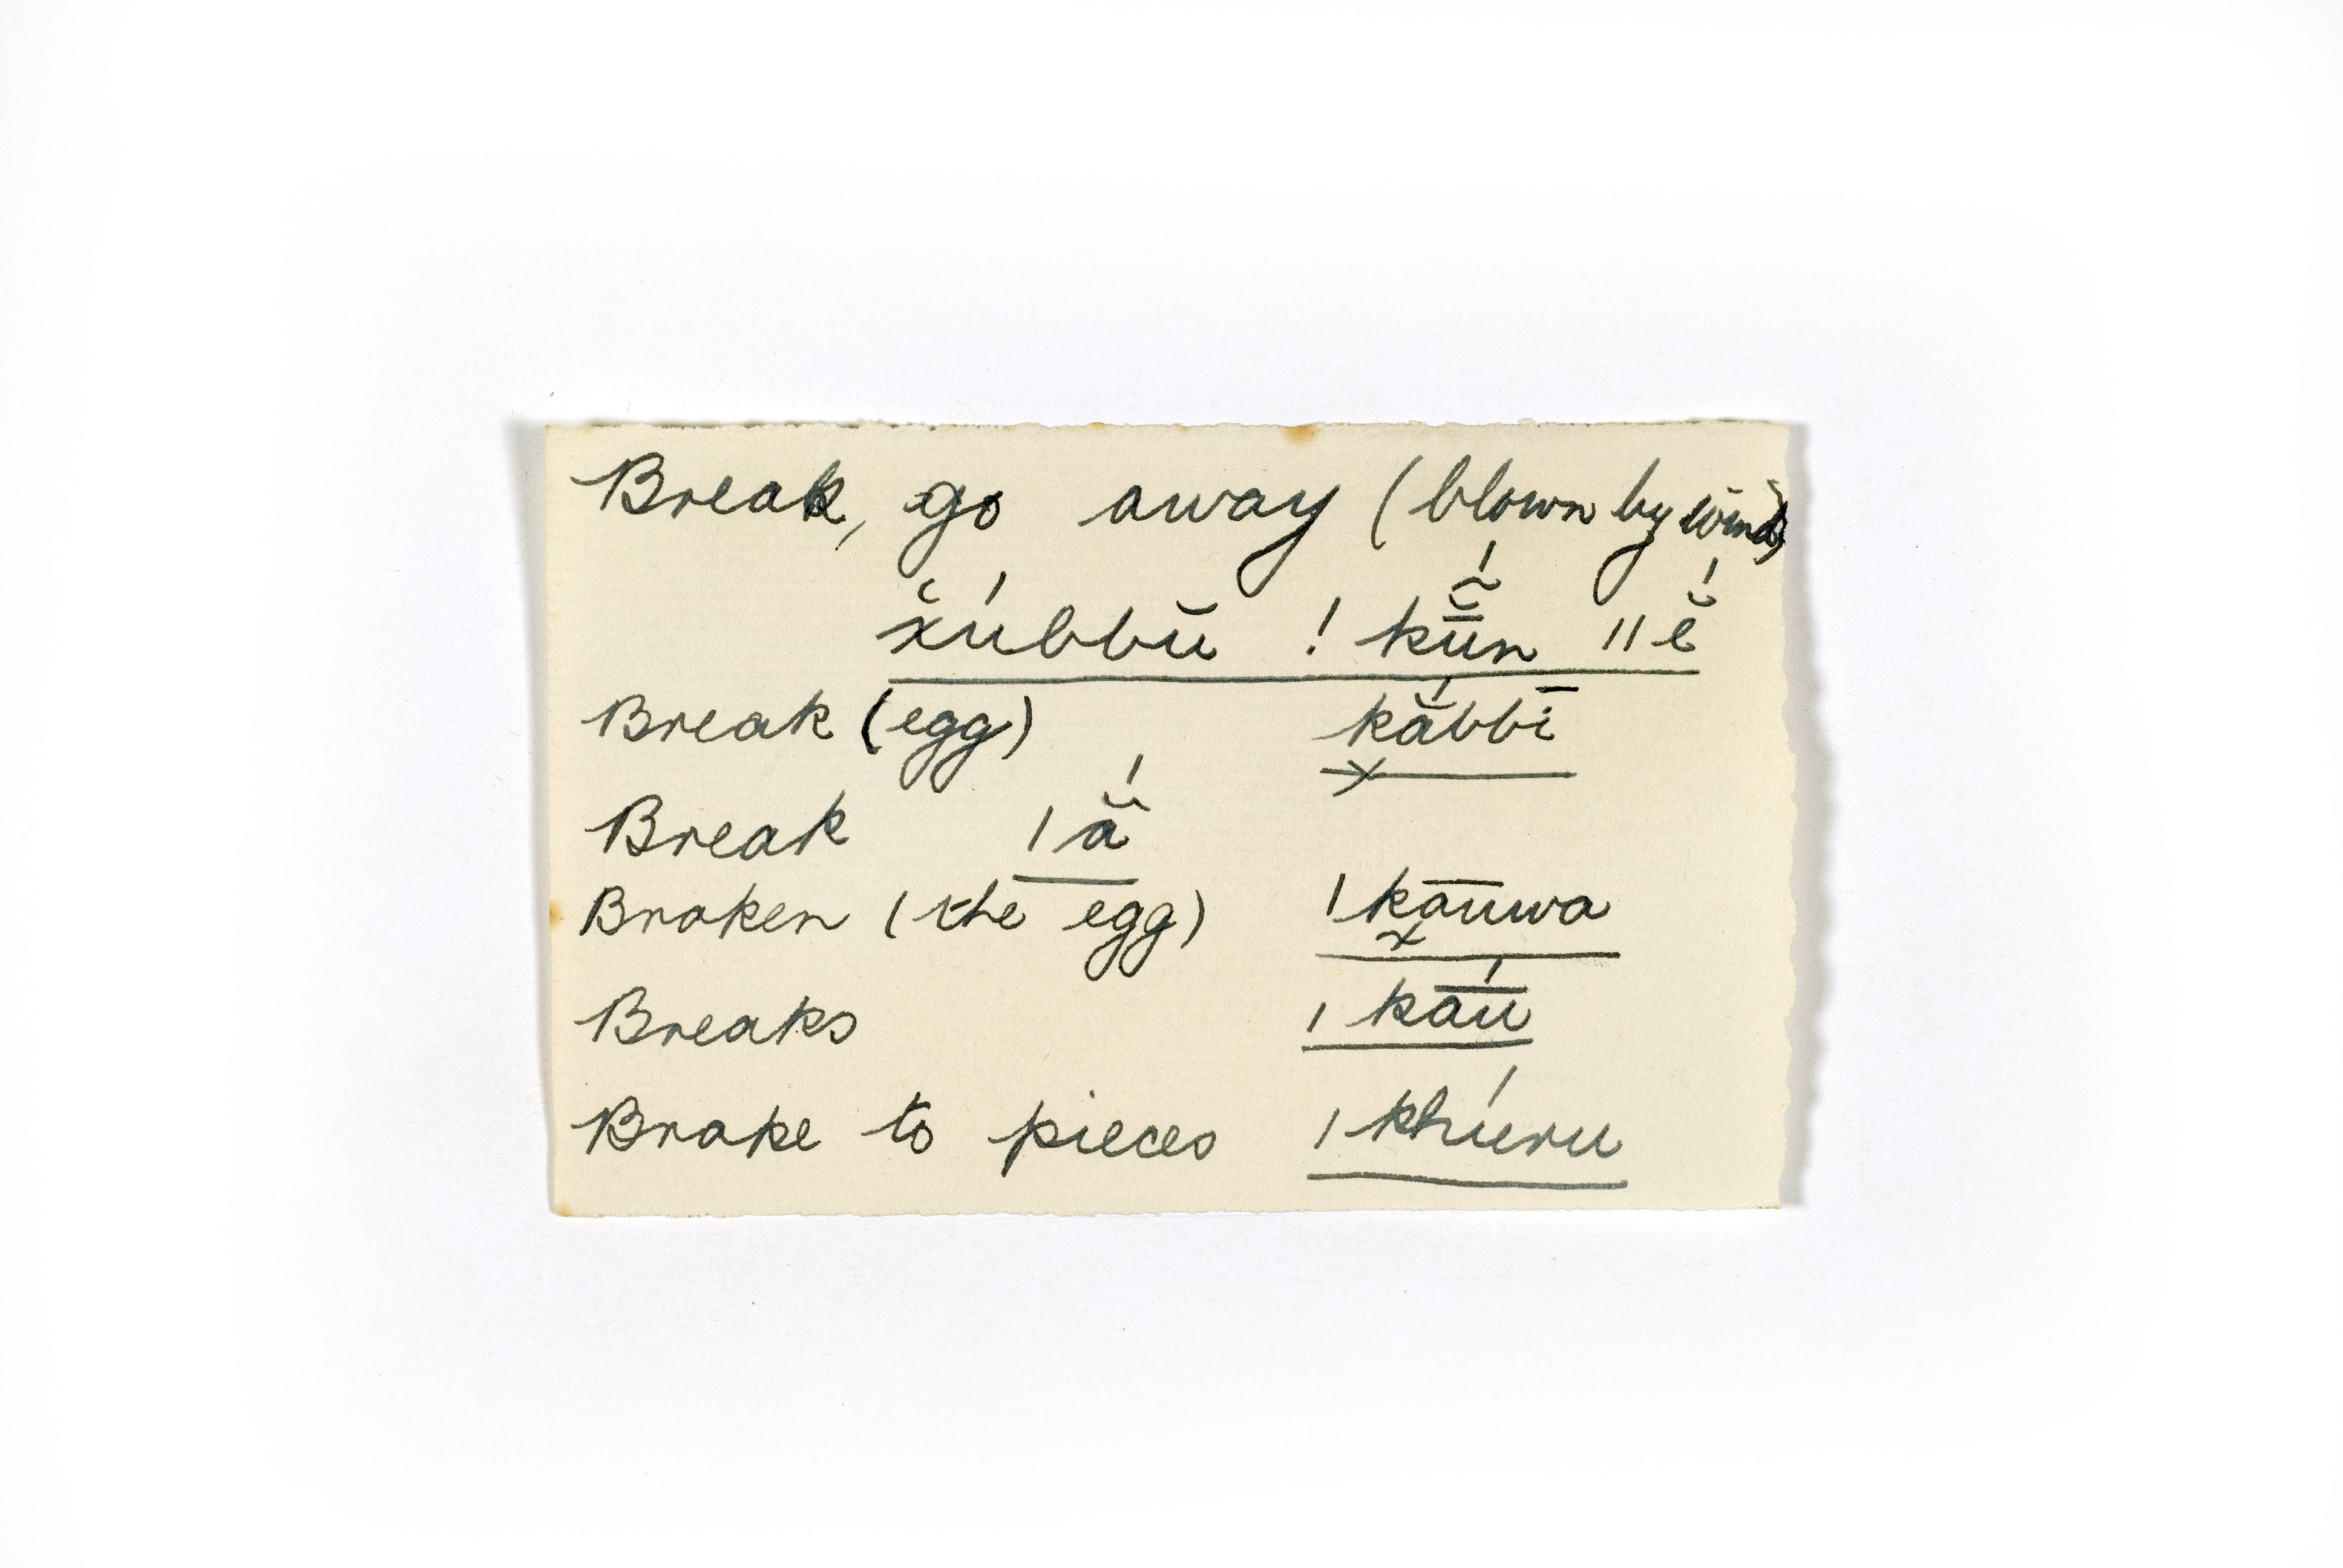 Break, go away (blown by wind)
x̆úbbŭ !kū̆́n ǁĕ́
Break (egg) kắbbī
Break ǀắ
Broken (the egg) ǀkāūwa
Breaks ǀkāū́
Broke to pieces ǀkhúru